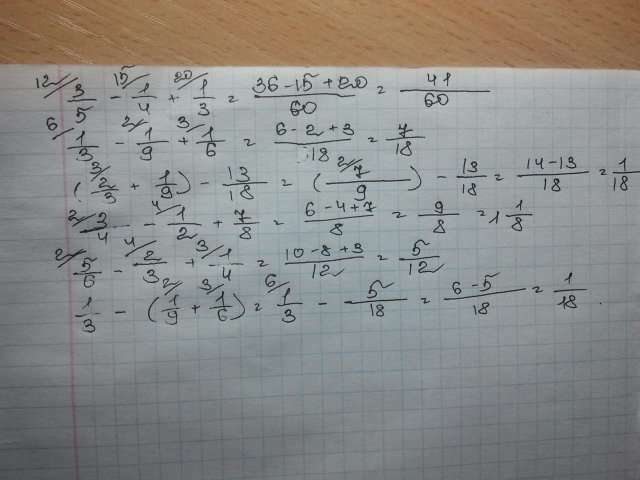 12/ 3/5 - 15/ 1/4 + 20/ 1/3 = (36-15+20)/60 = 41/60
6/ 1/3 - 2/ 1/9 + 3/ 1/6 = (6-2+3)/18 = 7/18
(3/ 2/3 + 1/9) - 13/18 = (2/ 7/9) - 13/18 = (14-13)/18 = 1/18
2/ 3/4 - 4/ 1/2 + 7/8 = (6-4+7)/8 = 9/8 = 1 1/8
2/ 5/6 - 4/ 2/3 + 3/ 1/4 = (10-8+3)/12 = 5/12
1/3 - (2/ 1/9 + 3/ 1/6) = 6/ 1/3 - 5/18 = (6-5)/18 = 1/18.